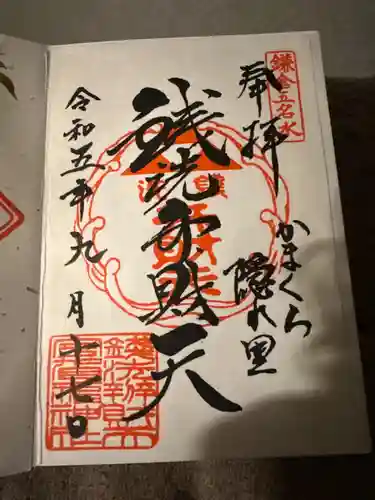 鎌倉五名水
奉拝
かまくら
隠れ里
銭洗弁財天
令和五年九月十七日